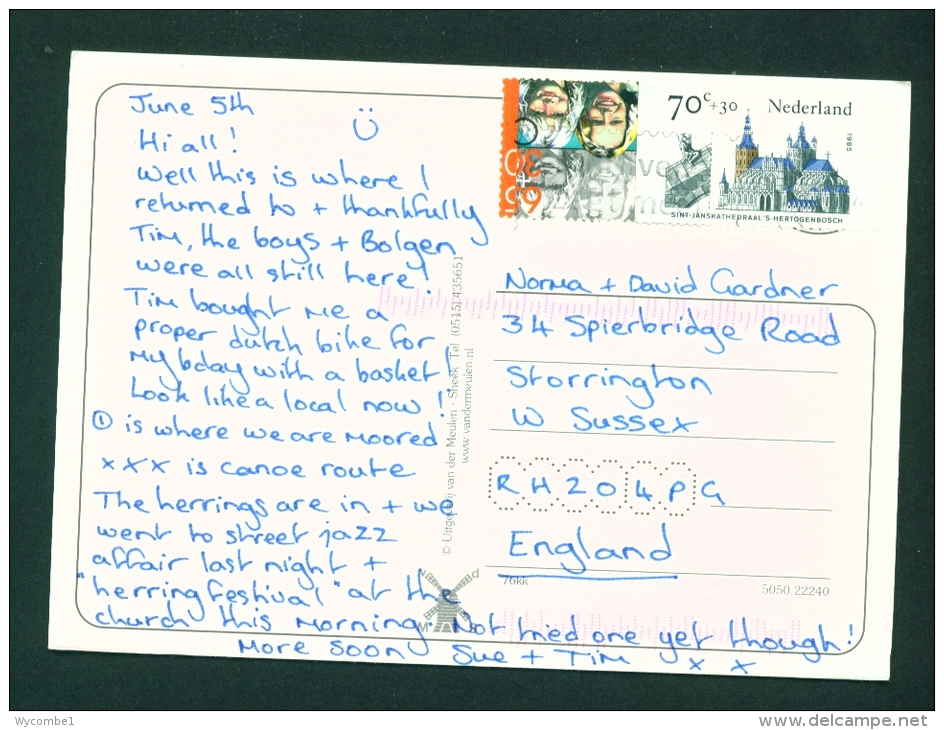 June 5th
Hi all!
Well this is where I
returned to + thankfully
Tim, the boys + Bolgen
were all still here!
Tim bought me a
proper dutch bike for
my bday with a basket!
Look like a local now!
① is where we are moored
xxx is canoe route
The herrings are in + we
went to street jazz
affair last night +
"herring festival" at the
church this morning. Not tried one yet though!
More soon Sue + Tim x x
70c+30 Nederland
1985
SINT-JANSKATHEDRAAL 'S-HERTOGENBOSCH
Norma + David Gardner
34 Spierbridge Road
Storrington
W Sussex
RH20 4PG
England
© Uitgeverij van der Meulen - Sneek Tel. (0515) 435651
www.vandermeulen.nl
76kk
5050.22240
Wycombe1
delcampe.net